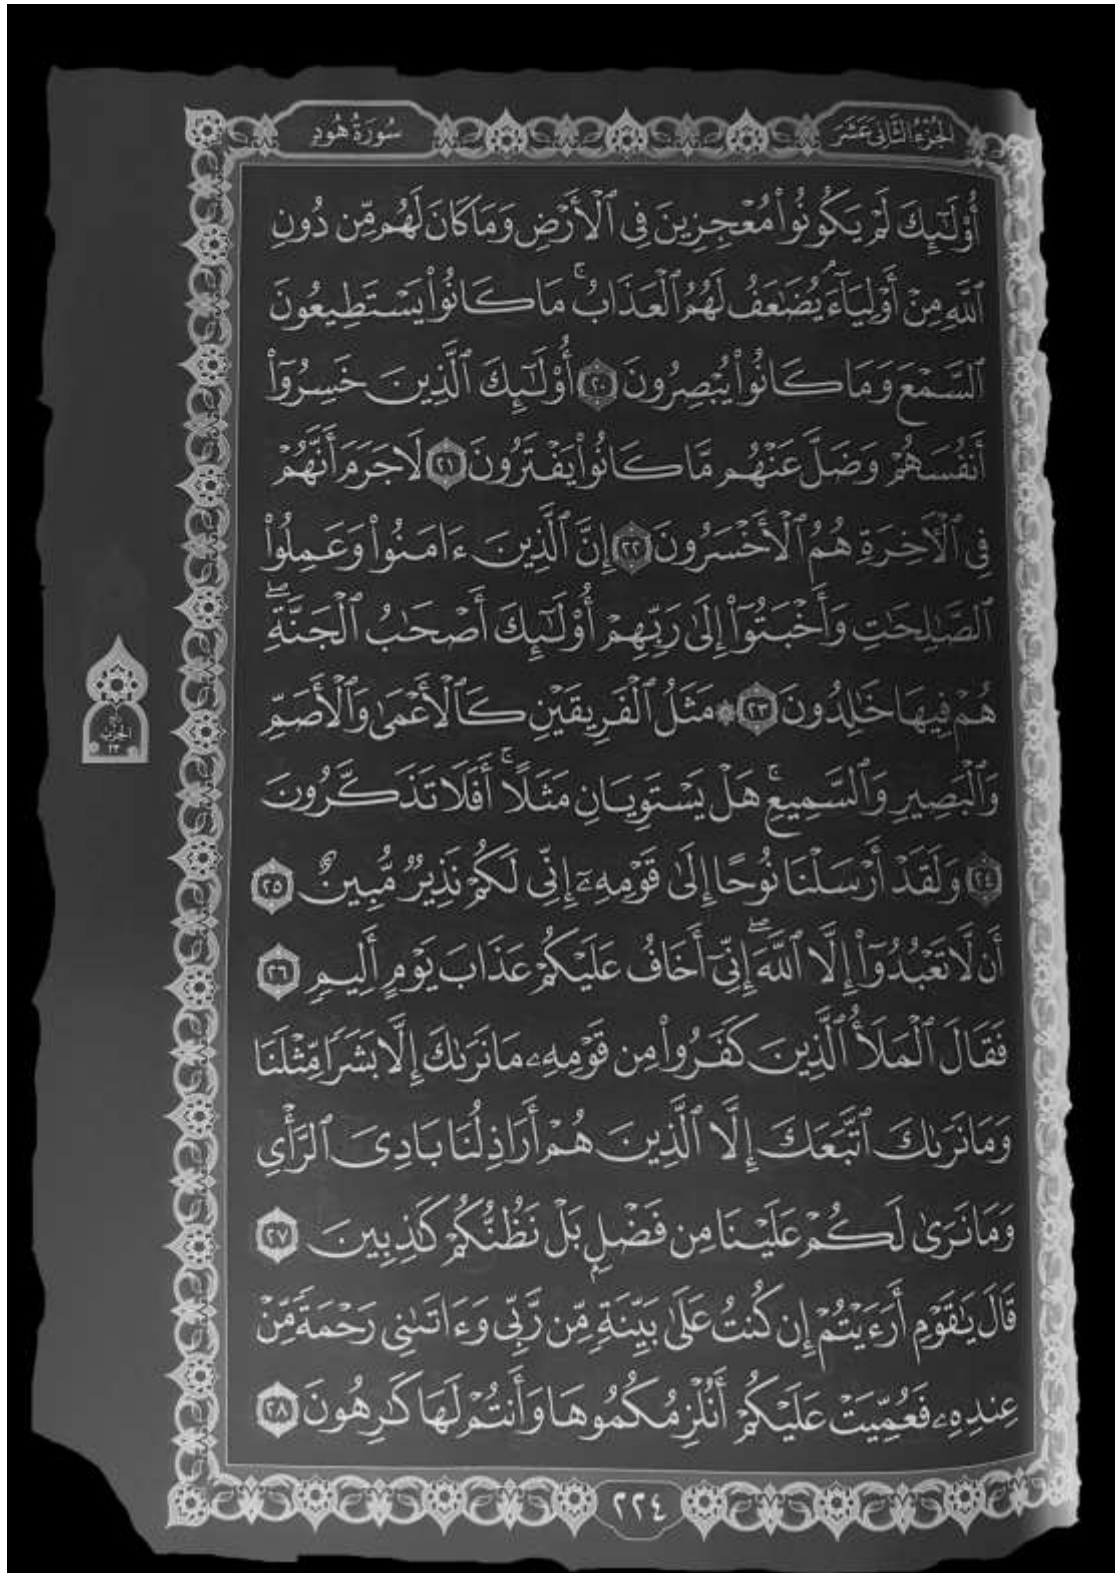 الجزء الثاني عشر
سورة هود
أُوْلَٰٓئِكَ لَمْ يَكُونُوا۟ مُعْجِزِينَ فِى ٱلْأَرْضِ وَمَا كَانَ لَهُم مِّن دُونِ
ٱللَّهِ مِنْ أَوْلِيَآءَۘ يُضَٰعَفُ لَهُمُ ٱلْعَذَابُۚ مَا كَانُوا۟ يَسْتَطِيعُونَ
ٱلسَّمْعَ وَمَا كَانُوا۟ يُبْصِرُونَ ٢٠ أُوْلَٰٓئِكَ ٱلَّذِينَ خَسِرُوٓا۟
أَنفُسَهُمْ وَضَلَّ عَنْهُم مَّا كَانُوا۟ يَفْتَرُونَ ٢١ لَا جَرَمَ أَنَّهُمْ
فِى ٱلْأٓخِرَةِ هُمُ ٱلْأَخْسَرُونَ ٢٢ إِنَّ ٱلَّذِينَ ءَامَنُوا۟ وَعَمِلُوا۟
ٱلصَّٰلِحَٰتِ وَأَخْبَتُوٓا۟ إِلَىٰ رَبِّهِمْ أُوْلَٰٓئِكَ أَصْحَٰبُ ٱلْجَنَّةِۖ
هُمْ فِيهَا خَٰلِدُونَ ٢٣ ۞ مَثَلُ ٱلْفَرِيقَيْنِ كَٱلْأَعْمَىٰ وَٱلْأَصَمِّ
وَٱلْبَصِيرِ وَٱلسَّمِيعِۚ هَلْ يَسْتَوِيَانِ مَثَلًاۚ أَفَلَا تَذَكَّرُونَ
٢٤ وَلَقَدْ أَرْسَلْنَا نُوحًا إِلَىٰ قَوْمِهِۦٓ إِنِّى لَكُمْ نَذِيرٌ مُّبِينٌ ٢٥
أَن لَّا تَعْبُدُوٓا۟ إِلَّا ٱللَّهَۖ إِنِّىٓ أَخَافُ عَلَيْكُمْ عَذَابَ يَوْمٍ أَلِيمٍ ٢٦
فَقَالَ ٱلْمَلَأُ ٱلَّذِينَ كَفَرُوا۟ مِن قَوْمِهِۦ مَا نَرَىٰكَ إِلَّا بَشَرًا مِّثْلَنَا
وَمَا نَرَىٰكَ ٱتَّبَعَكَ إِلَّا ٱلَّذِينَ هُمْ أَرَاذِلُنَا بَادِىَ ٱلرَّأْىِ
وَمَا نَرَىٰ لَكُمْ عَلَيْنَا مِن فَضْلٍۭ بَلْ نَظُنُّكُمْ كَٰذِبِينَ ٢٧
قَالَ يَٰقَوْمِ أَرَءَيْتُمْ إِن كُنتُ عَلَىٰ بَيِّنَةٍ مِّن رَّبِّى وَءَاتَىٰنِى رَحْمَةً مِّنْ
عِندِهِۦ فَعُمِّيَتْ عَلَيْكُمْ أَنُلْزِمُكُمُوهَا وَأَنتُمْ لَهَا كَٰرِهُونَ ٢٨
الحزب
٢٣
٢٢٤